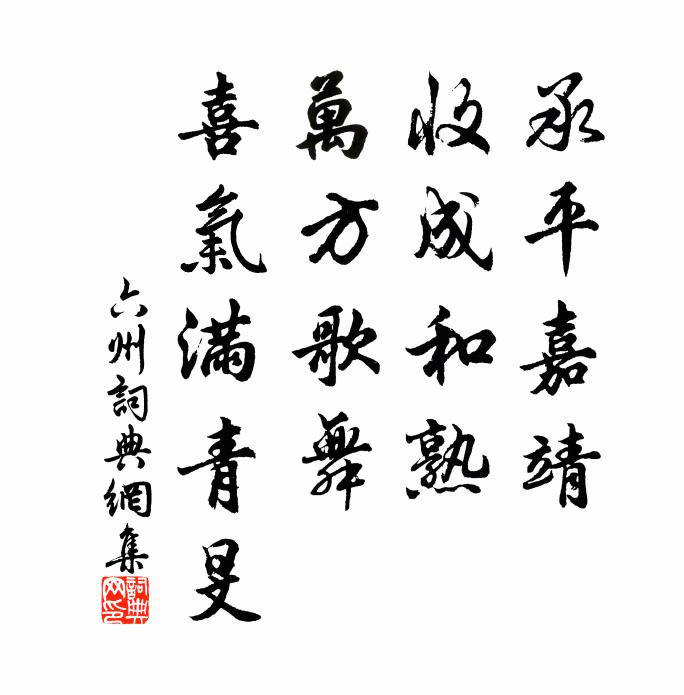 承平嘉靖
收成和熟
萬方歌舞
喜氣滿青旻
六州詞典網集
詞典網印